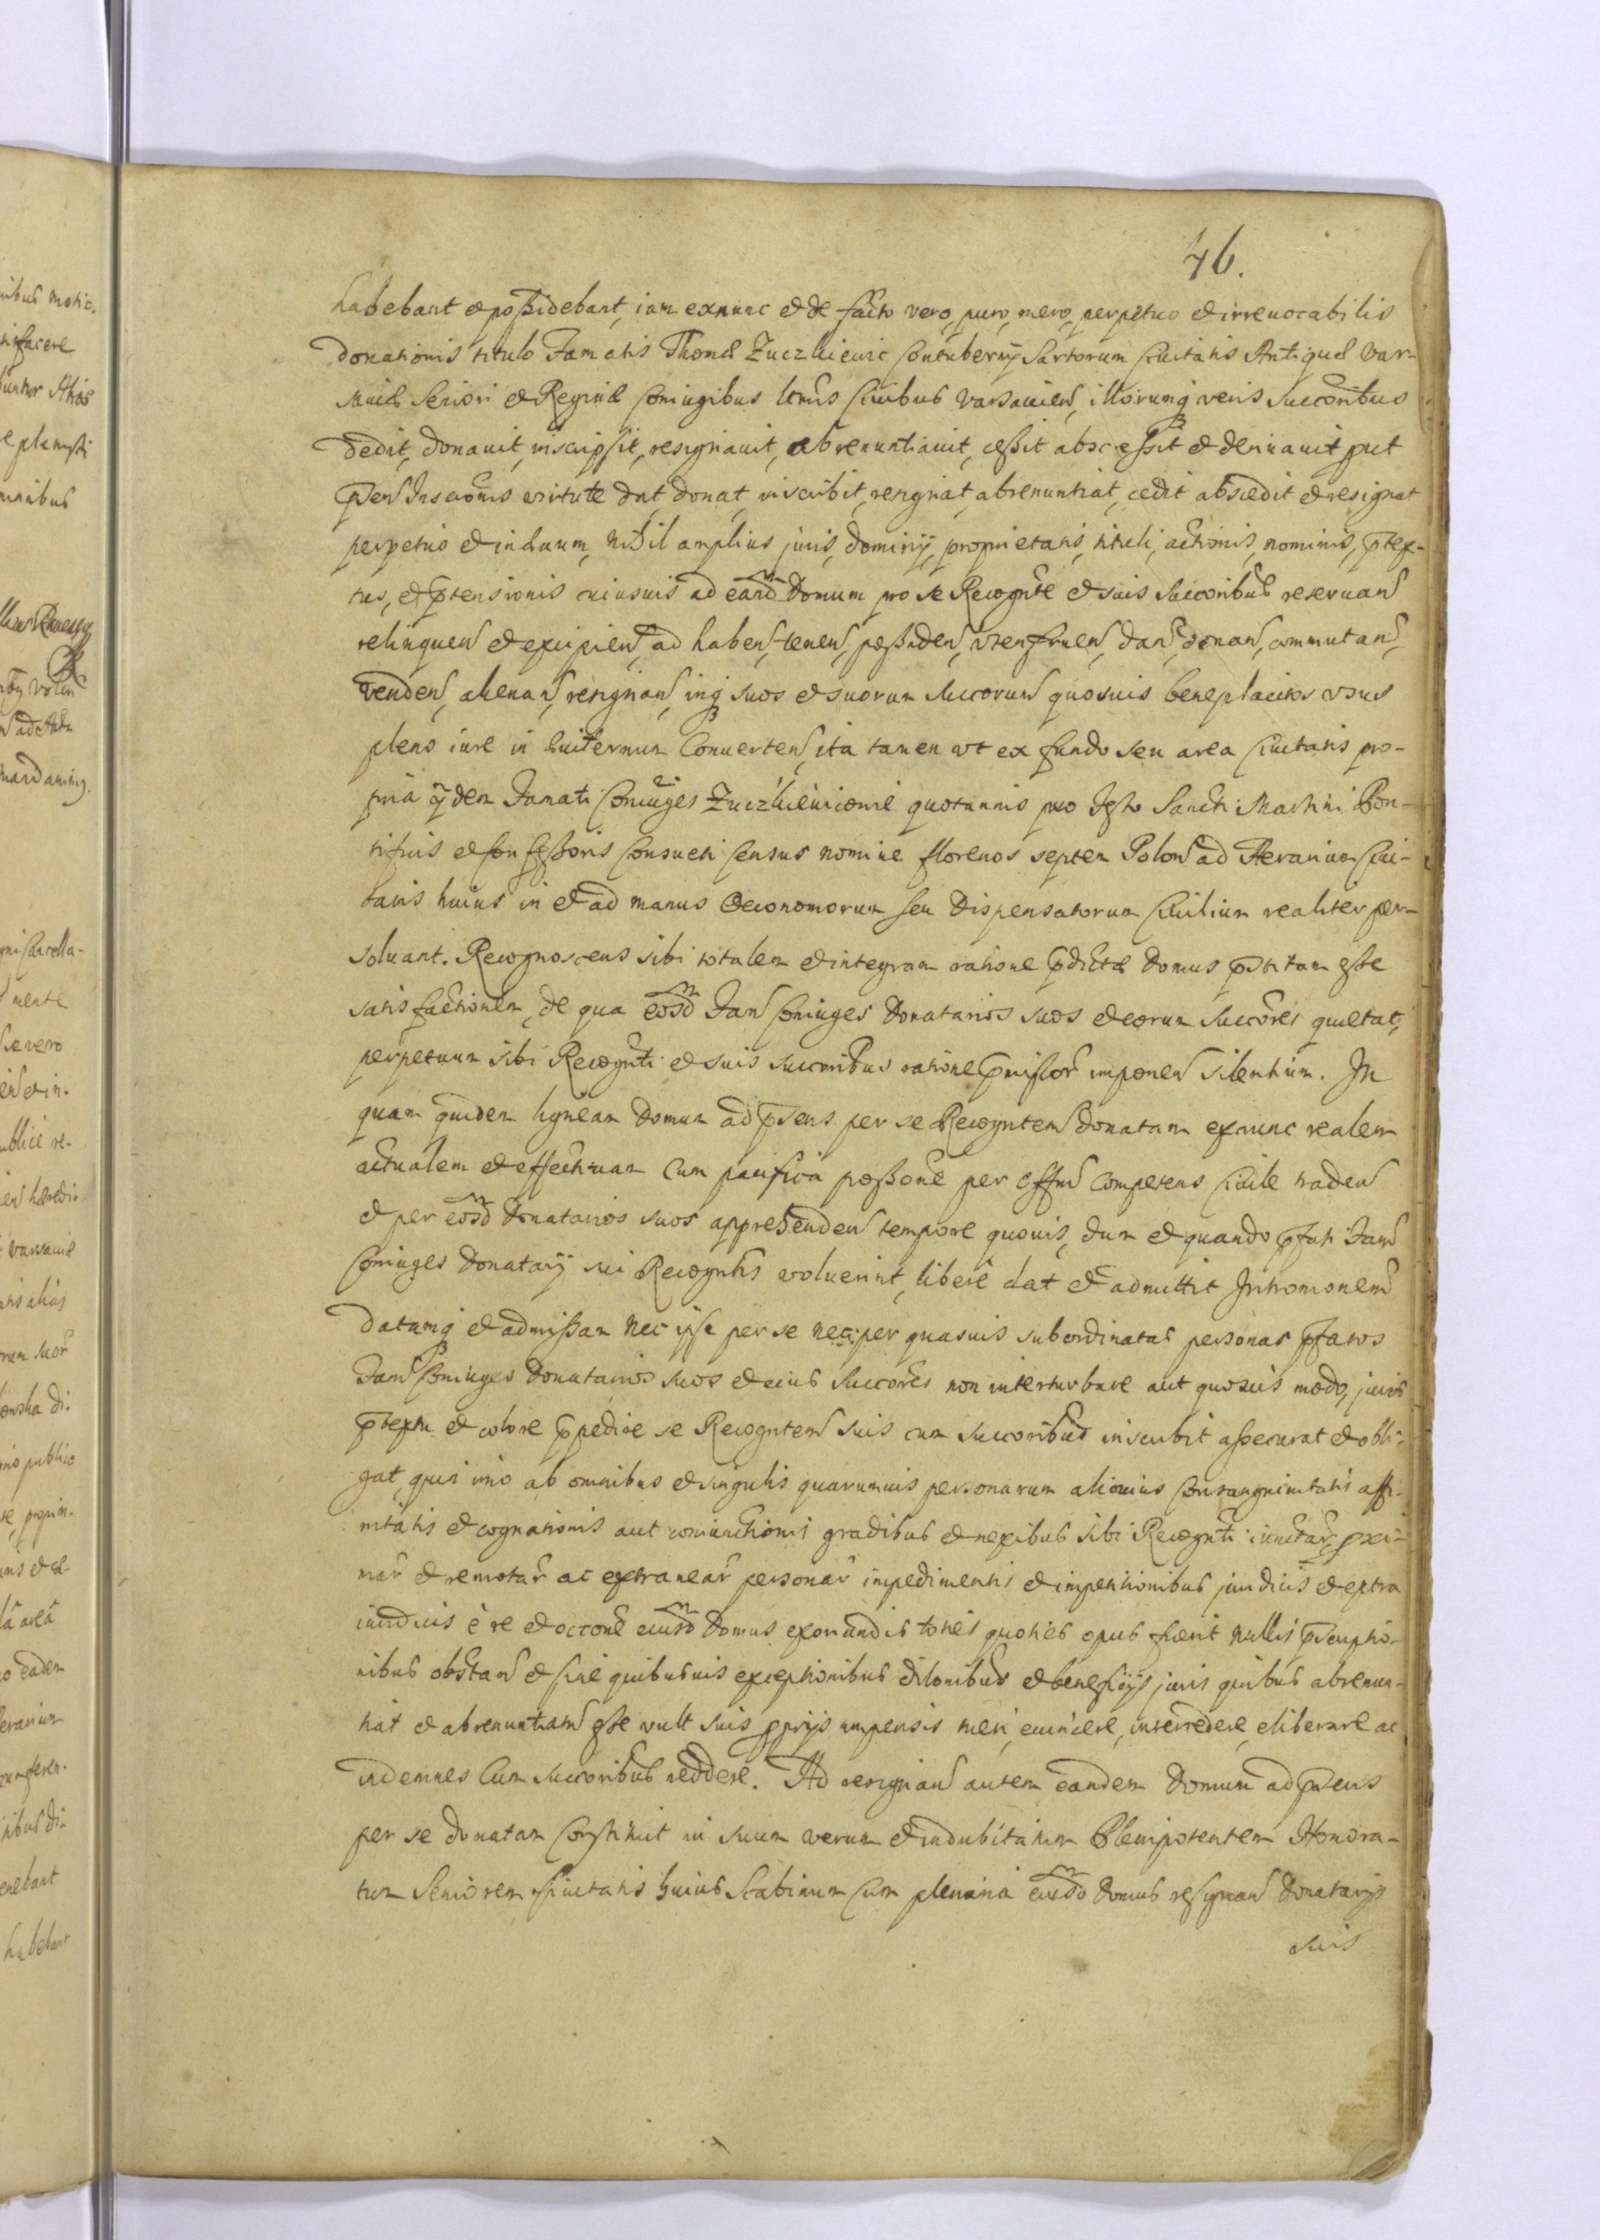 46.
habebant et possidebant, iam exnunc et de facto vero, puro, mero, perpetuo et irrevocabilis
donationis titulo Famatis Thomæ Zuczkiewic Contubernij Sartorum Civitatis Antiquæ Var-
saviæ Seniori et Reginæ Coniugibus Civibus Varsavien, illorumq veris Succoribus
dedit, donavit, inscripsit, resignavit, abrenuntiavit, cessit abscessit et derivavit put
Pñs Inscriõnis virtute dat, donat, inscribit, resignat, abrenuntiat, cedit abscedit et resignat
perpetuo et in ævum, nihil amplius juris, dominij, proprietatis, tituli, actionis, nominis, ptex-
tus, et ptensionis cuiusvis ad eand Domum pro se Recognte et suis Succoribus reservan
relinquen et excipien, ad haben, tenen, possiden, uten fruen, dan, donan, commutan,
venden, alienan, resignan, inq suos et suorum Succorum quosvis beneplacitos usus
pleno iure in æviternum Converten, ita tamen ut ex fundo seu area Civitatis pro-
pria qdem Famati Coniuges Zuczkiewicowie quotannis pro Festo Sancti Martini Pon-
tificis et Confessoris Consueti Census nomine florenos septem Polon ad Aerarium Civi-
tatis huius in et ad manus Oeconomorum seu Dispensatorum Civilium realiter per-
solvant. Recognoscens sibi totalem et integram ratione pdictæ Domus pstitam esse
satisfactionem, de qua eosd Fam Coniuges Donatarios suos et eorum Succores quietat,
perpetuum sibi Recognti et suis Succoribus ratione pmissor imponen silentium. In
quam quidem ligneam Domum ad psens per se Recognten Donatam exnunc realem
actualem et effectivam Cum pacifica possone per Offm Competens Civile traden
et per eosd Donatarios suos apprehenden tempore quovis, dum et quando pfati Fam
Coniuges Donatarij sui Recogntis voluerint, libere dat et admittit Intromonem
Datamq et admissam nec ipse per se nec per quasvis subordinatas personas pfatos
Fam Coniuges Donatarios suos et eius Succores non interturbare aut quosvis modo, juris
ptextu et colore ppedire se Recognten suis cum Succoribus inscribit assecurat et obli-
gat, quin imo ab omnibus et singulis quarumvis personarum alicuius Consanguinitatis affi-
nitatis et cognationis aut coniunctionis gradibus et nexibus sibi Recognti iunctar, pxi-
mar et remotar ac extranear personar impedimentis et impetitionibus judicijs et extra
iudicijs è re et occone eiusd Domus exoriundis toties quoties opus fuerit nullis pscriptio-
nibus obstan et sine quibusvis exceptionibus dilonibus et beneficijs juris quibus abrenun-
tiat et abrenuntiatu esse vult suis pprijs impensis tueri, evincere, intercedere, eliberare ac
indemnes Cum Succoribus reddere. Ad resignan autem eandem Domum ad psens
per se donatam Constituit in suum verum et indubitatum Plenipotentem Honora-
tum Seniorem Civitatis huius Scabinum Cum plenaria eiusd Domus resignan Donatarijs
suis